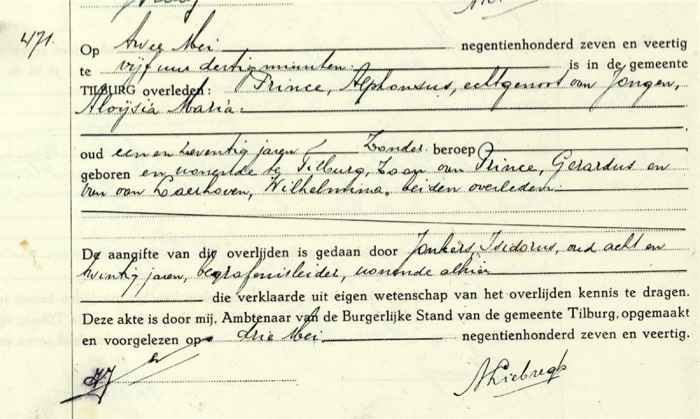 471.
Op twee Mei negentienhonderd zeven en veertig
te vijf uur dertig minuten. is in de gemeente
TILBURG overleden: Prince, Alphonsus, echtgenoot van Jongen,
Aloÿsia Maria.
oud een en zeventig jaren, Zonder beroep,
geboren en wonende te Tilburg, Zoon van Prince, Gerardus en
van van Laarhoven, Wilhelmina, beiden overleden.
De aangifte van dit overlijden is gedaan door Jonkers, Isidorus, oud acht en
twintig jaren, begrafenisleider, wonende alhier
die verklaarde uit eigen wetenschap van het overlijden kennis te dragen.
Deze akte is door mij, Ambtenaar van de Burgerlijke Stand van de gemeente Tilburg, opgemaakt
en voorgelezen op drie Mei negentienhonderd zeven en veertig.